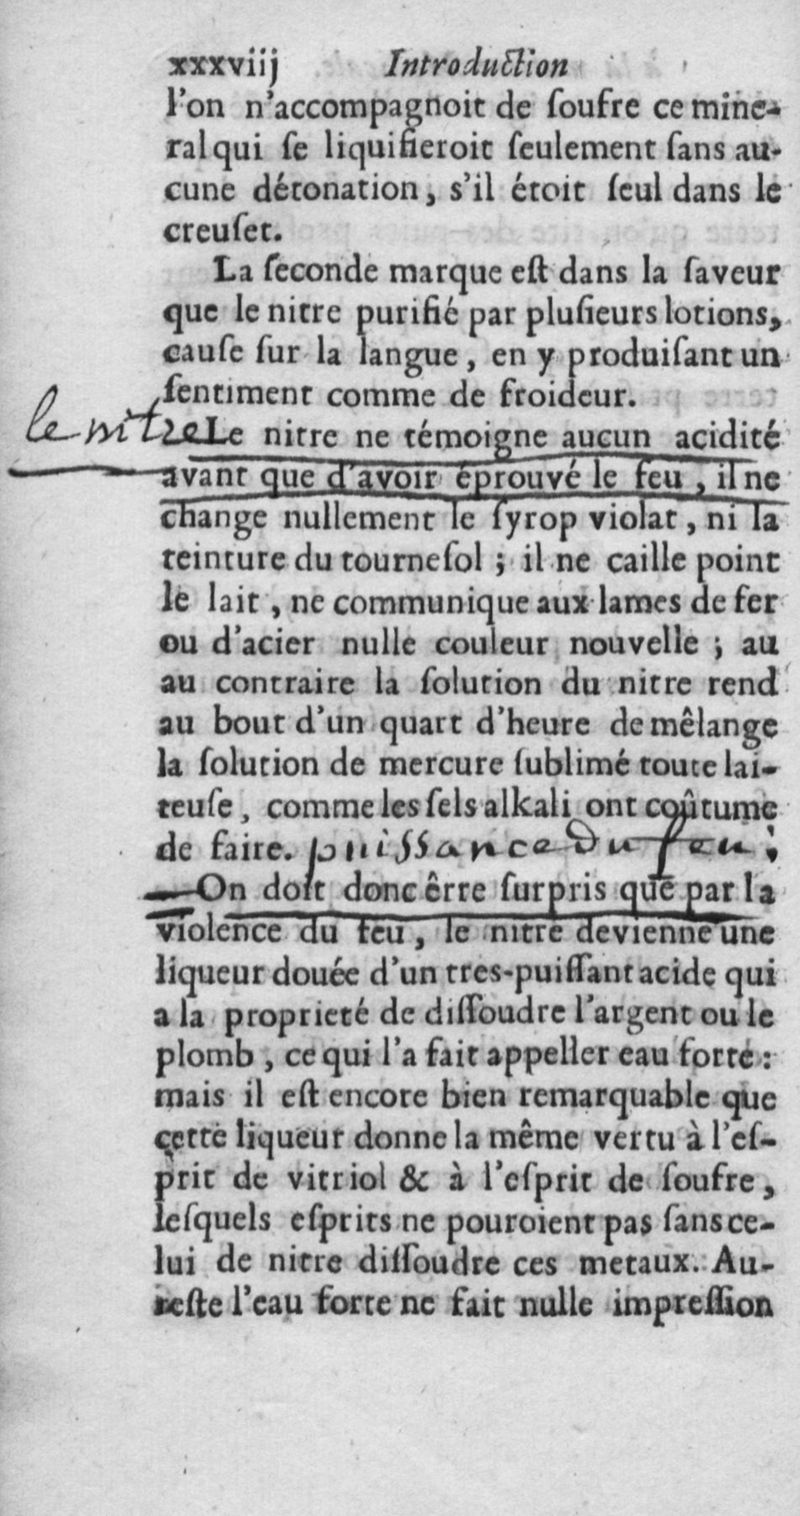 xxxviij Introduction
l'on n'accompagnoit de ſoufre ce mine-
ral qui ſe liquifieroit ſeulement ſans au-
cune détonation, s'il étoit ſeul dans le
creuſet.
La ſeconde marque eſt dans la ſaveur
que le nitre purifié par pluſieurs lotions,
cauſe ſur la langue, en y produiſant un
ſentiment comme de froideur.
le nitre
Le nitre ne témoigne aucun acidité
avant que d'avoir éprouvé le feu, il ne
change nullement le ſyrop violat, ni la
teinture du tourneſol; il ne caille point
le lait, ne communique aux lames de fer
ou d'acier nulle couleur nouvelle; au
au contraire la ſolution du nitre rend
au bout d'un quart d'heure de mêlange
la ſolution de mercure ſublimé toute lai-
teuſe, comme les ſels alkali ont coûtume
de faire.
puissance du feu;
On doit donc êrre ſurpris que par la
violence du feu, le nitre devienne une
liqueur douée d'un tres-puiſſant acide qui
a la proprieté de diſſoudre l'argent ou le
plomb, ce qui l'a fait appeller eau forte:
mais il eſt encore bien remarquable que
cette liqueur donne la même vertu à l'eſ-
prit de vitriol & à l'eſprit de ſoufre,
leſquels eſprits ne pouroient pas ſans ce-
lui de nitre diſſoudre ces metaux. Au-
reſte l'eau forte ne fait nulle impreſſion